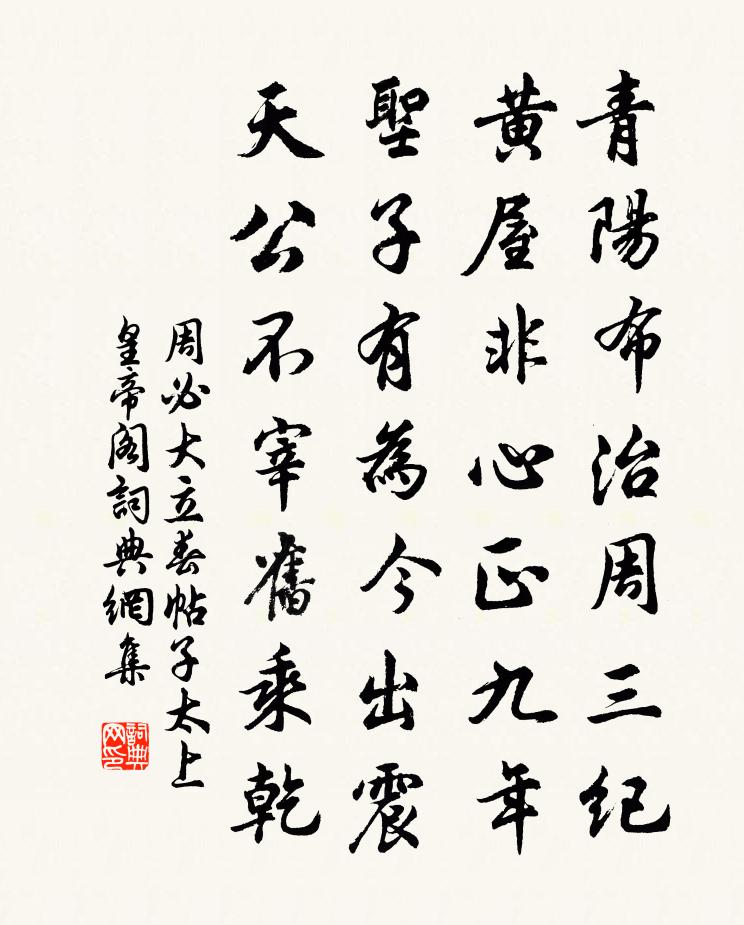 青陽布治周三紀
黃屋非心正九年
聖子有為今出震
天公不宰舊乘乾
周必大立春帖子太上
皇帝閣詞典網集
詞典网印